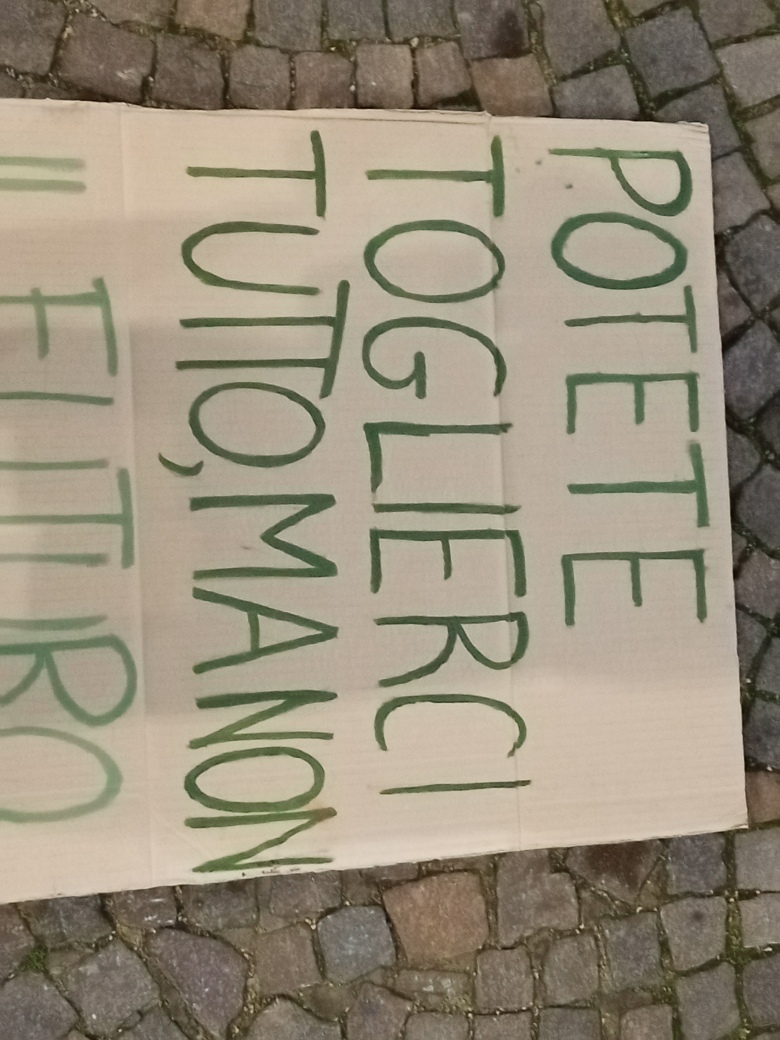 POTETE
TOGLIERCI
TUTTO, MA NON
IL FUTURO